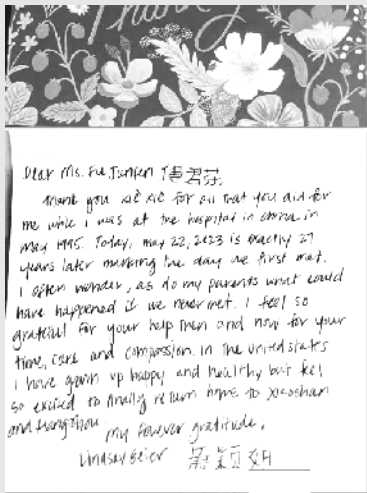 Thank
Dear Ms. Fu Junfen 傅君芬
Thank you xiè xiè for all that you did for
me while I was at the hospital in China in
May 1995. Today, May 22, 2023 is exactly 27
years later marking the day we first met.
I often wonder, as do my parents what could
have happened if we never met. I feel so
grateful for your help then and now for your
time, care and compassion. In the United States
I have grown up happy and healthy but feel
so excited to finally return home to Xiaoshan
and Hangzhou.
My forever gratitude,
Lindsay Beier